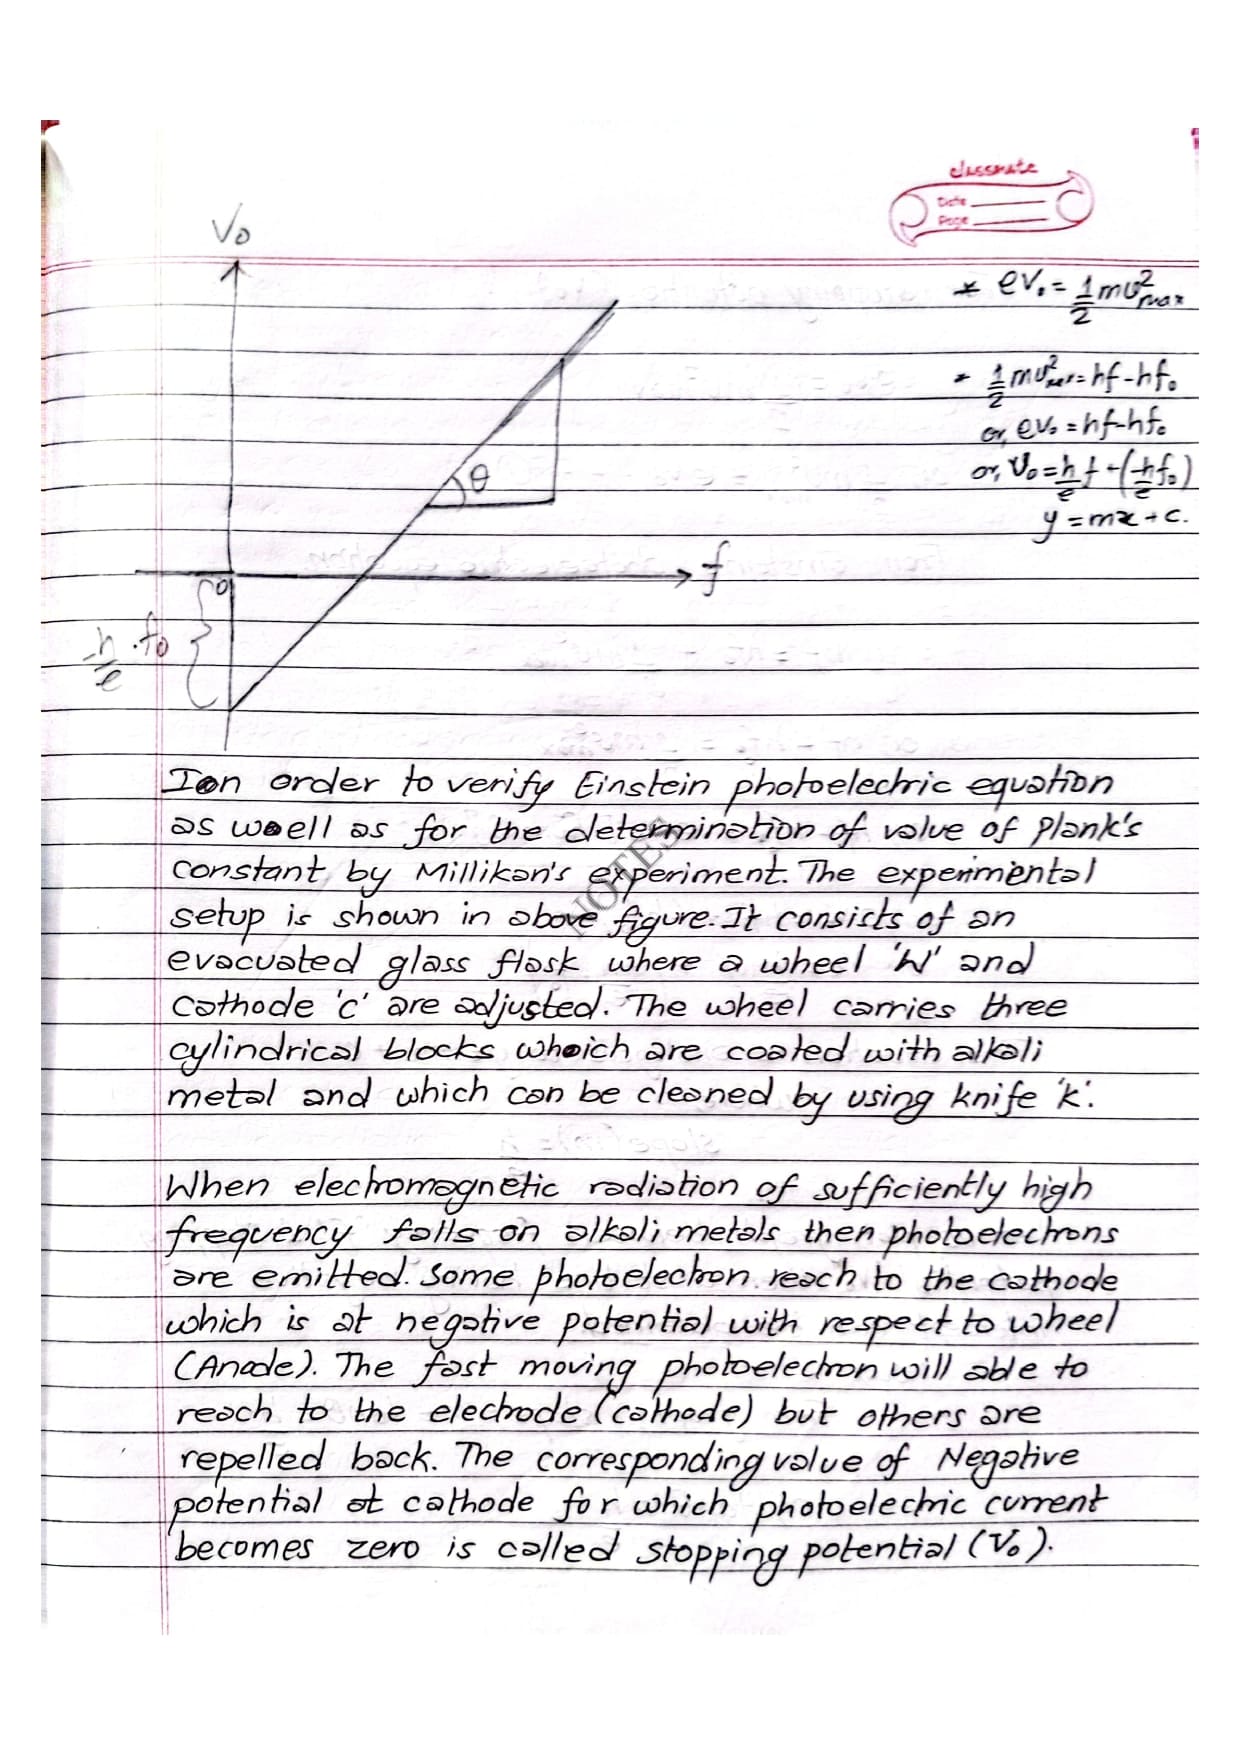 classmate
Date
Page
V₀
* eV₀ = 1/2 mv²max
* 1/2 mv²max = hf - hf₀
or, eV₀ = hf - hf₀
or, V₀ = h/e f + (-h/e f₀)
y = mx + c.
θ
f
0
-h/e . f₀
Ion order to verify Einstein photoelectric equation
as woell as for the determination of value of Plank's
constant by Millikan's experiment. The experimental
setup is shown in above figure. It consists of an
evacuated glass flask where a wheel 'W' and
cathode 'c' are adjusted. The wheel carries three
cylindrical blocks whoich are coated with alkali
metal and which can be cleaned by using knife 'k'.
NOTES
When electromagnetic radiation of sufficiently high
frequency falls on alkali metals then photoelectrons
are emitted. Some photoelectron reach to the cathode
which is at negative potential with respect to wheel
(Anode). The fast moving photoelectron will able to
reach to the electrode (cathode) but others are
repelled back. The corresponding value of Negative
potential at cathode for which photoelectric current
becomes zero is called stopping potential (V₀).